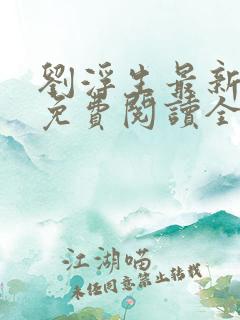 劉浮生最新
免費閱讀全
江湖喵
未經同意禁止轉載